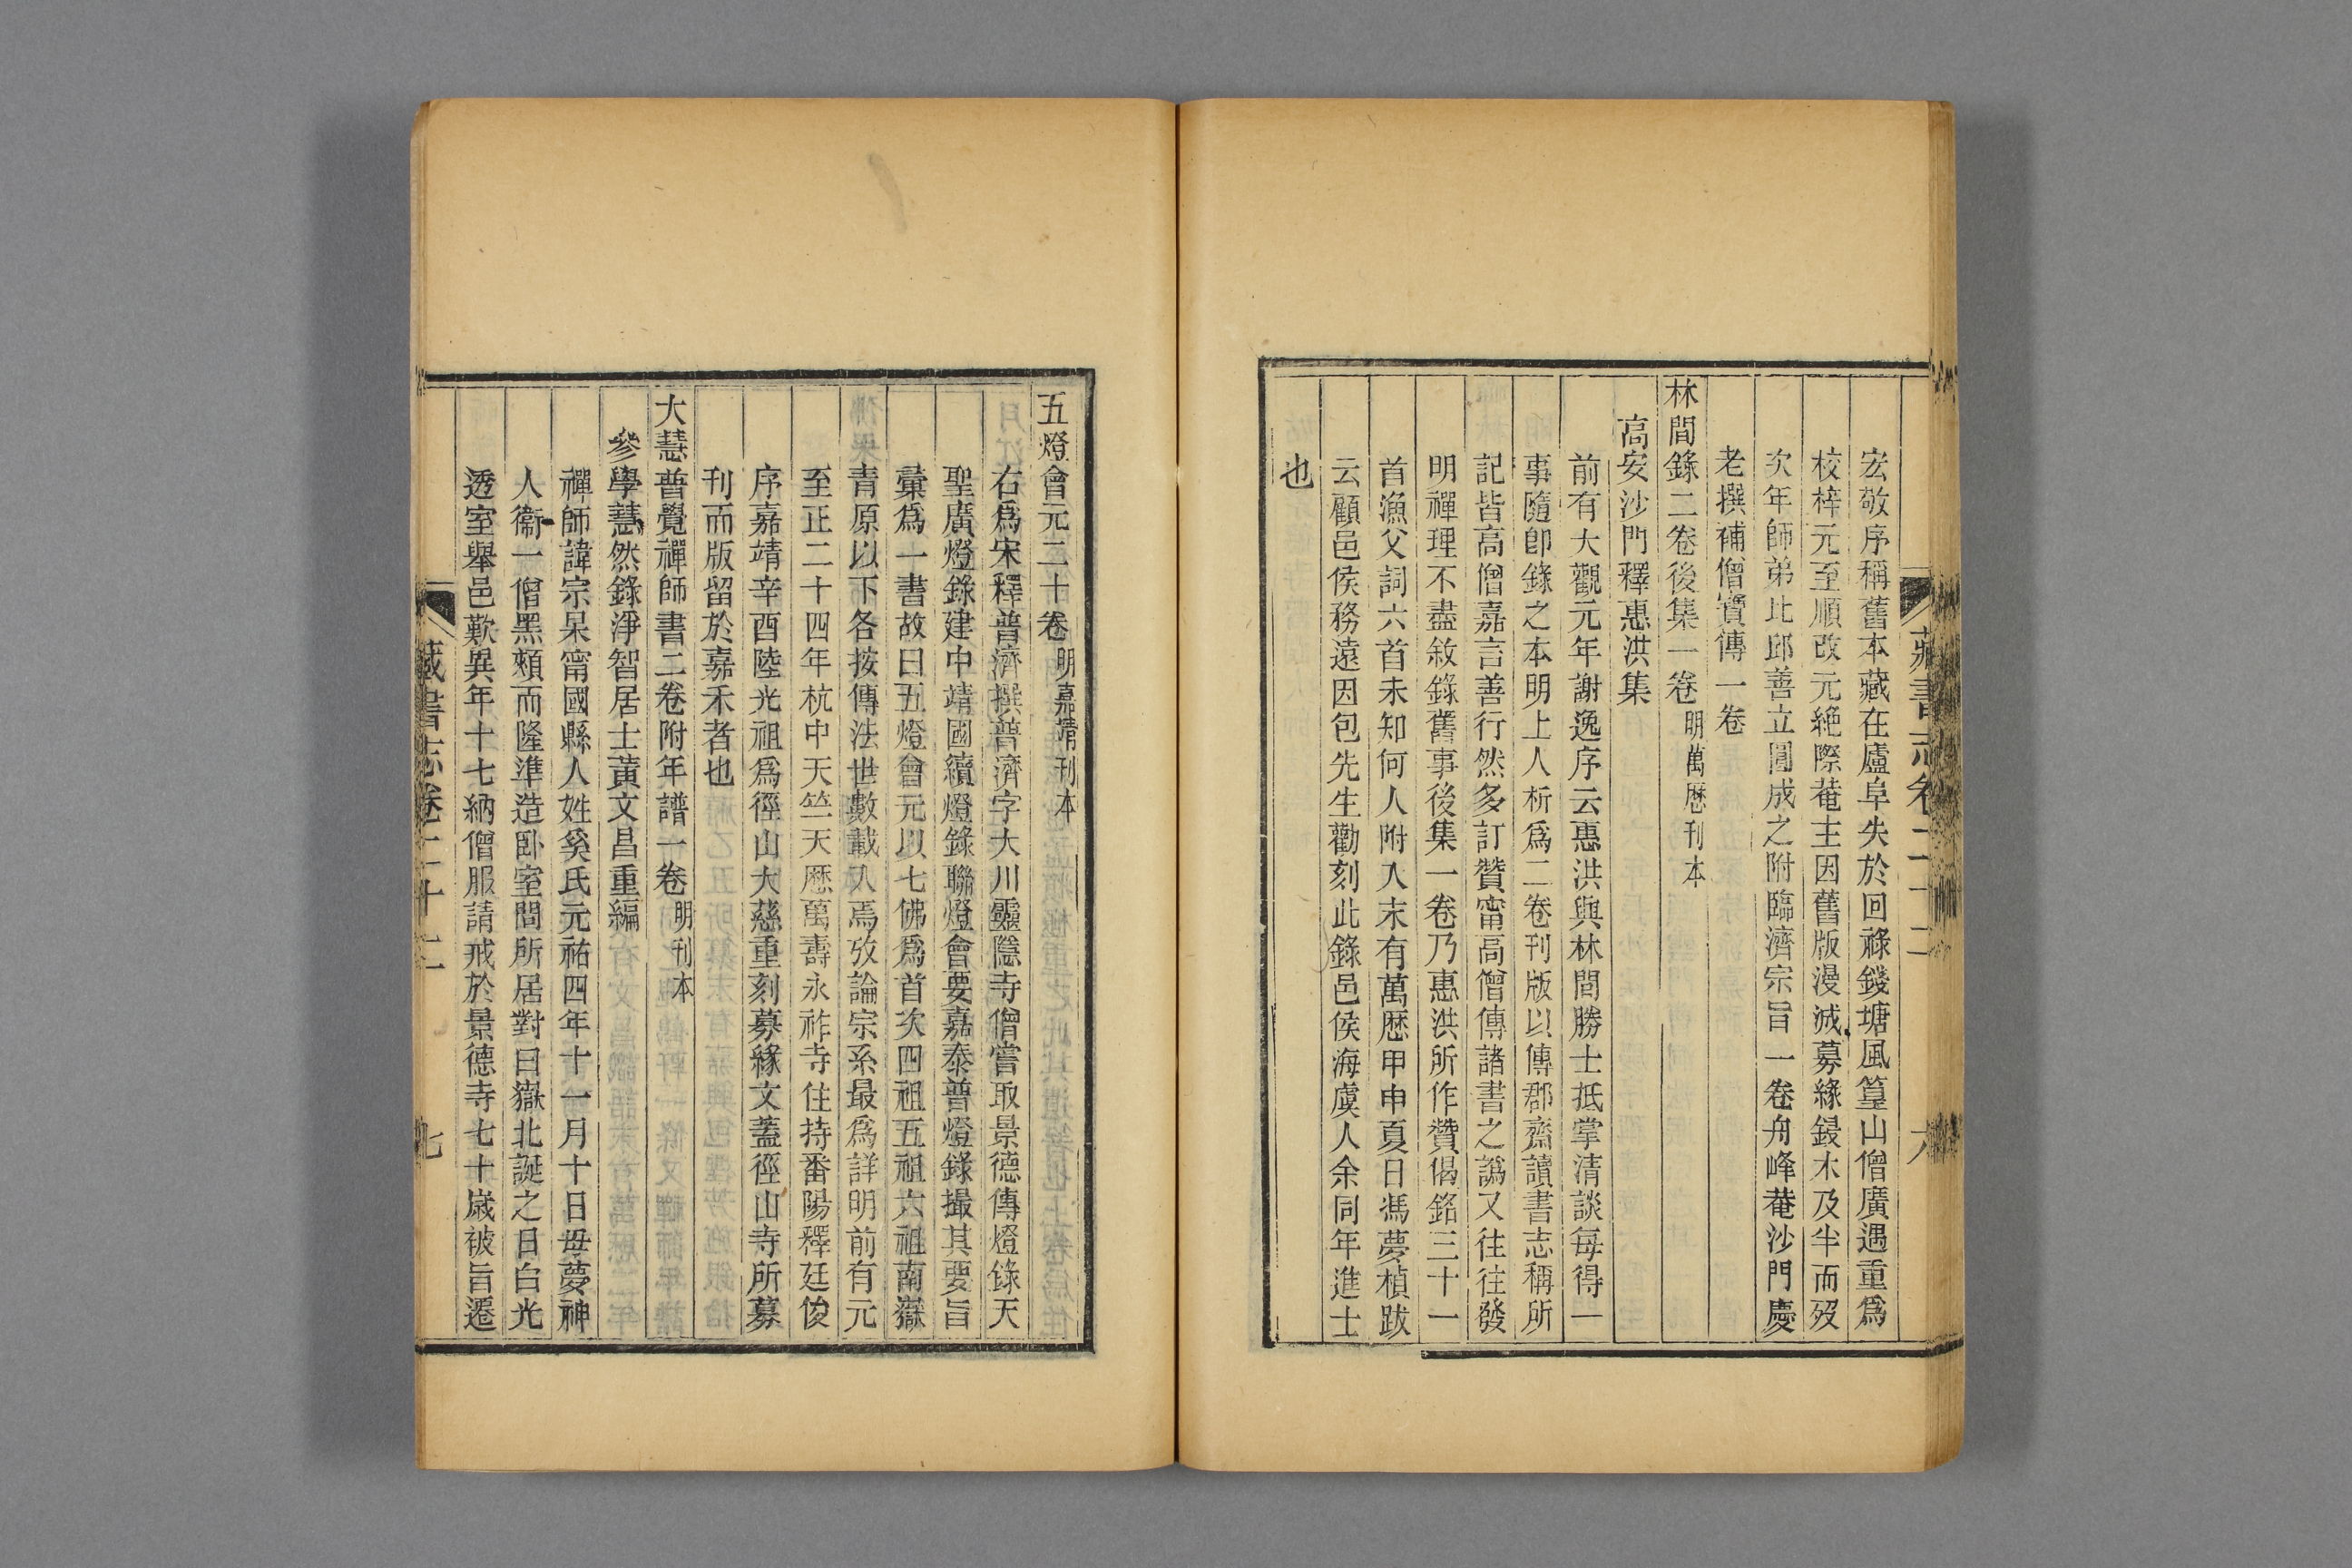 藏書志卷二十二 六
宏敬序稱舊本藏在廬阜失於回祿錢塘風篁山僧廣遇重爲
校梓元至順改元絶際菴主因舊版漫滅募緣鋟木及半而歿
次年師弟比邱善立圓成之附臨濟宗旨一卷舟峰菴沙門慶
老撰補僧寶傳一卷
林間錄二卷後集一卷 明萬歷刊本
高安沙門釋惠洪集
前有大觀元年謝逸序云惠洪與林間勝士抵掌清談每得一
事隨卽錄之本明上人析爲二卷刊版以傳郡齋讀書志稱所
記皆高僧嘉言善行然多訂贊甯高僧傳諸書之譌又往往發
明禪理不盡敘錄舊事後集一卷乃惠洪所作贊偈銘三十一
首漁父詞六首未知何人附入末有萬歷甲申夏日馮夢楨跋
云顧邑侯務遠因包先生勸刻此錄邑侯海虞人余同年進士
也
五燈會元二十卷 明嘉靖刊本
右爲宋釋普濟撰普濟字大川靈隱寺僧嘗取景德傳燈錄天
聖廣燈錄建中靖國續燈錄聯燈會要嘉泰普燈錄撮其要旨
彙爲一書故曰五燈會元以七佛爲首次四祖五祖六祖南嶽
青原以下各按傳法世數載入焉攷論宗系最爲詳明前有元
至正二十四年杭中天竺天歷萬壽永祚寺住持番陽釋廷俊
序嘉靖辛酉陸光祖爲徑山大慈重刻募緣文蓋徑山寺所募
刊而版留於嘉禾者也
大慧普覺禪師書二卷附年譜一卷 明刊本
參學慧然錄淨智居士黃文昌重編
禪師諱宗杲甯國縣人姓奚氏元祐四年十一月十日毋夢神
人衞一僧黑頰而隆準造臥室間所居對曰嶽北誕之日白光
透室舉邑歎異年十七納僧服請戒於景德寺七十歲被旨遷
藏書志卷二十二 七